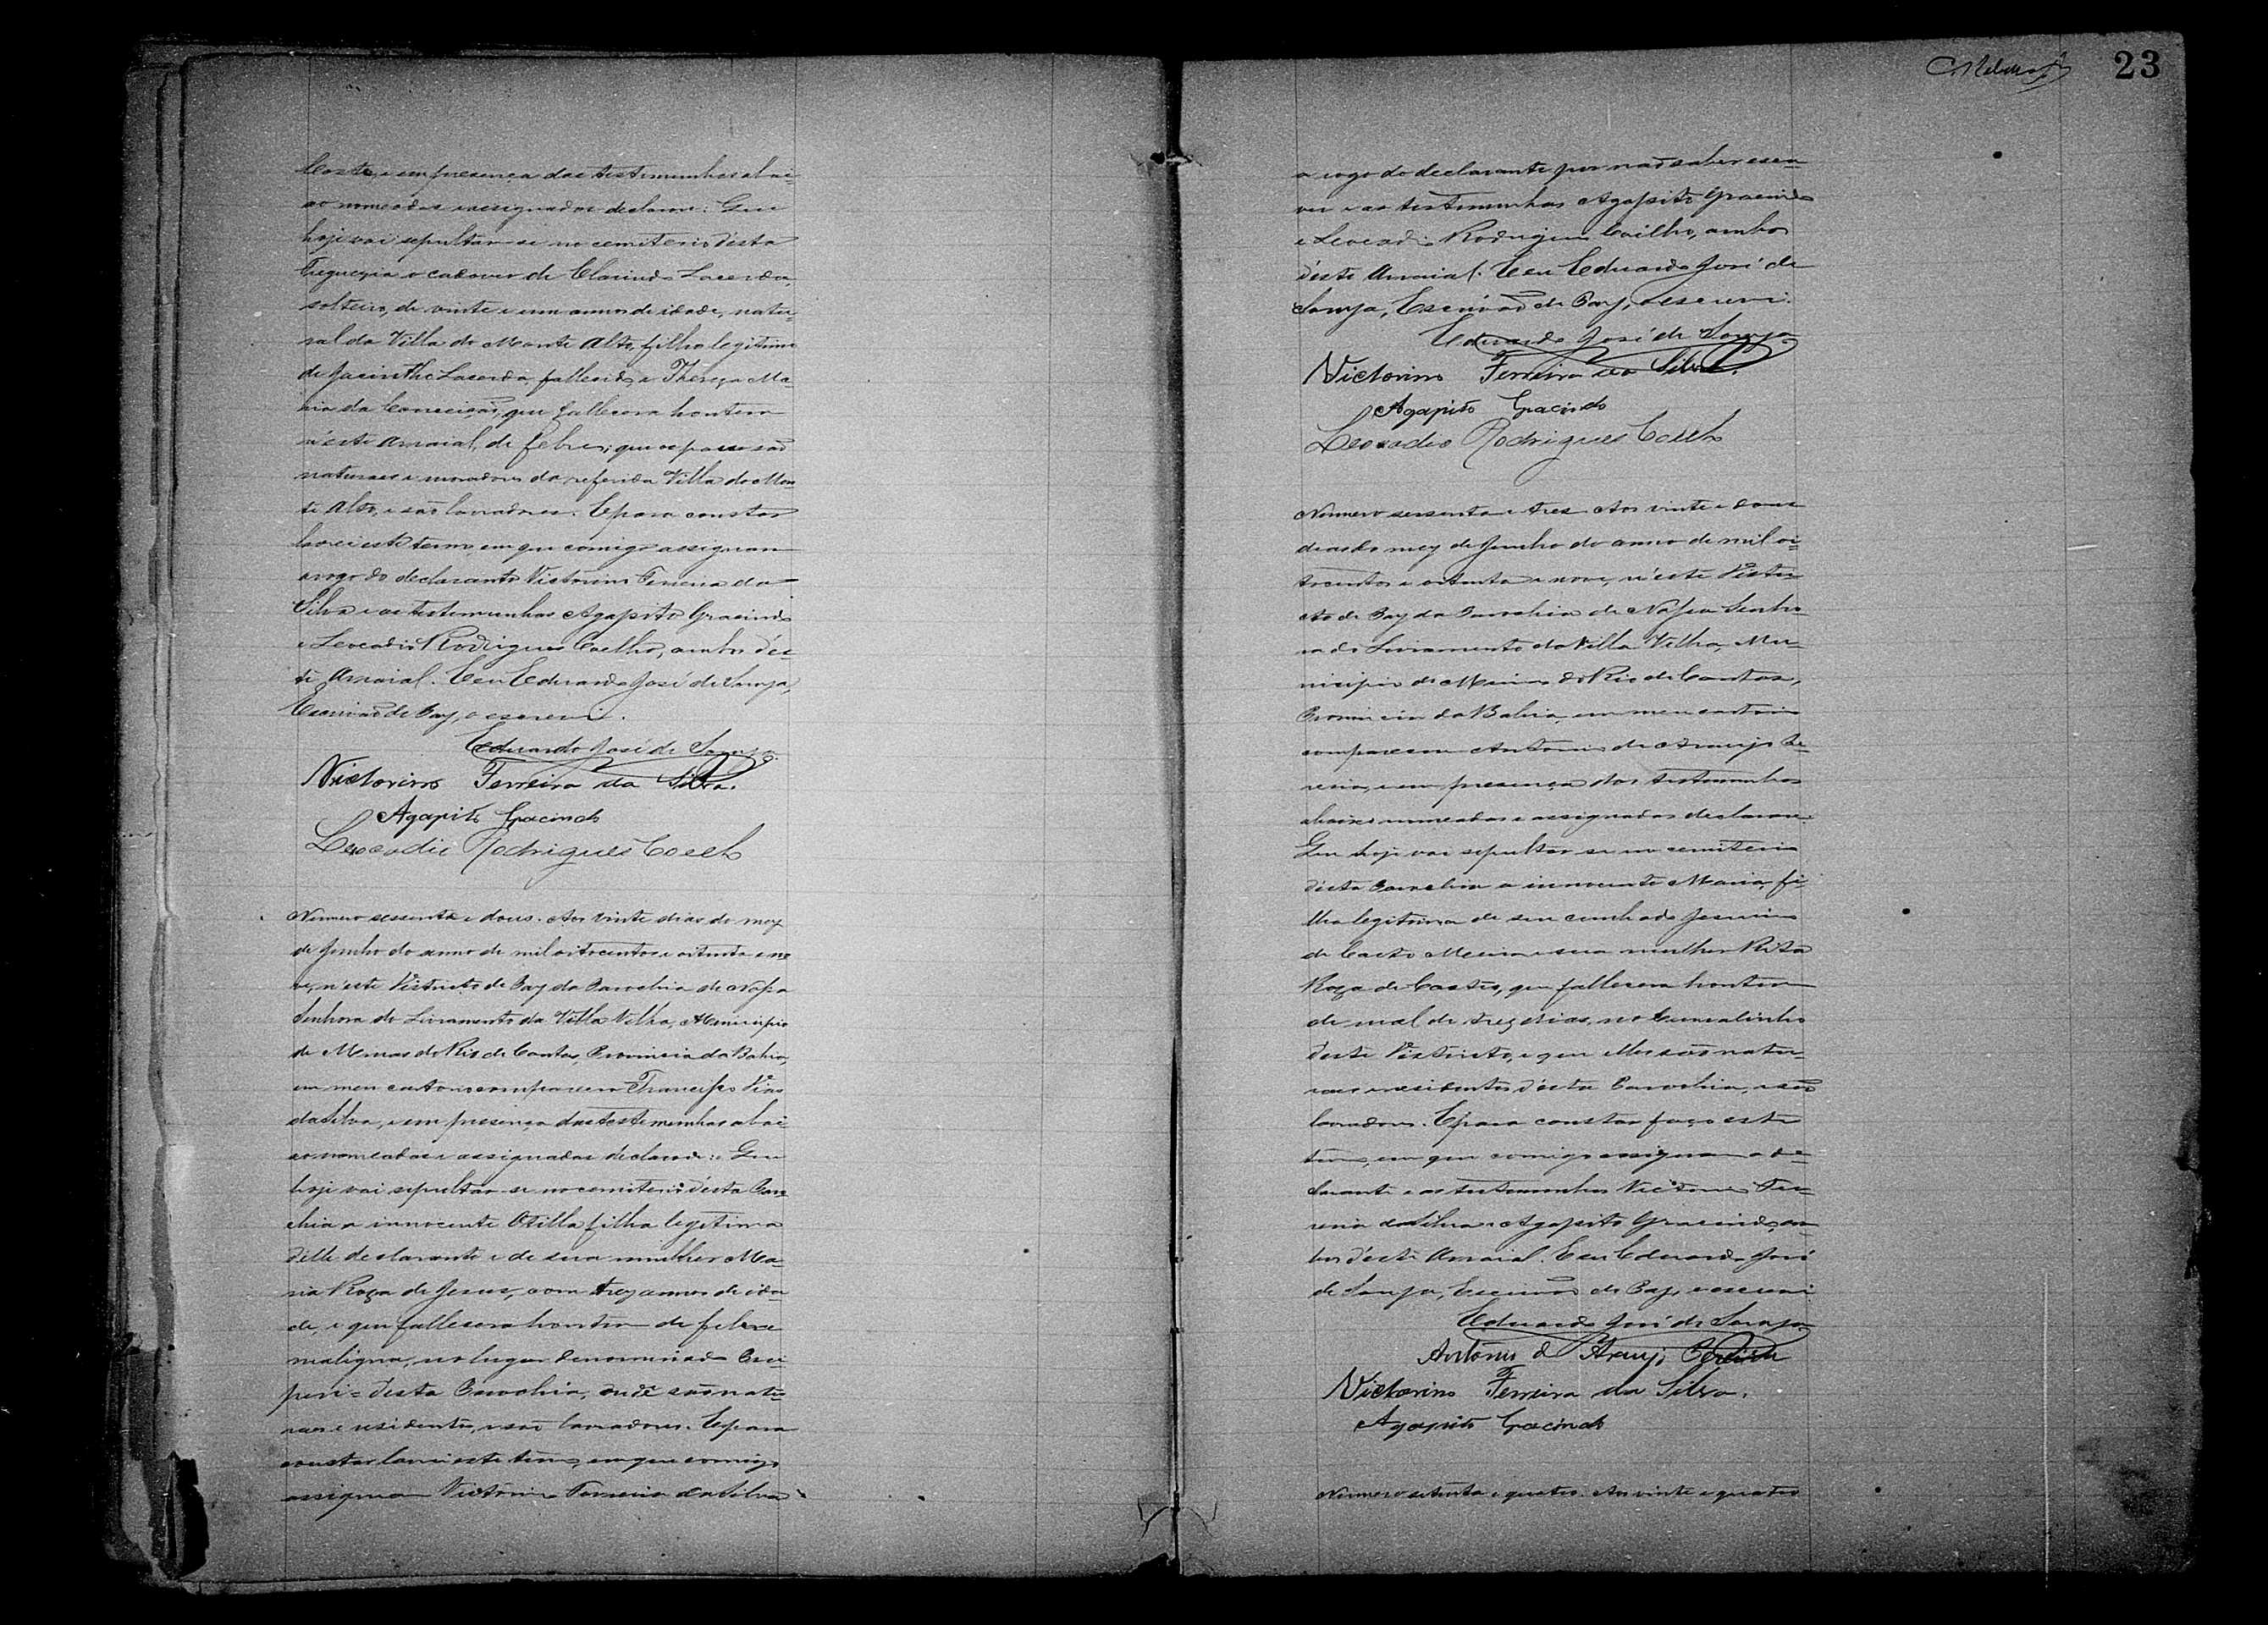 Costa, e em presença das testemunhas abai-
xo nomeadas e assignadas declarou: Que
hoje vai sepultar-se no cemiterio d'esta
Freguezia o cadaver de Clarindo Lacerda,
solteiro, de vinte e um annos de idade, natu-
ral da Villa do Monte Alto, filho legitimo
de Jacintho Lacerda, fallecido e Thereza Ma-
ria da Conceição, que fallecera hontem
n'este Arraial, de febre; que os paes são
naturaes e moradores da referida Villa do Mon
te Alto, e são lavradores. E para constar
lavrei este termo em que comigo assignam
a rogo do declarante Victorino Ferreira da
Silva e as testemunhas Agapito Gracindo
e Leocadio Rodrigues Coelho, ambos d'es-
te Arraial. E eu Eduardo José de Souza,
Escrivão de Paz, o escrevi.
Eduardo José de Souza
Victorino Ferreira da Silva.
Agapito Gracindo
Leocadio Rodrigues Coelho
Numero sessenta e dous. Aos vinte dias do mez
de Junho do anno de mil oitocentos e oitenta e no
ve, n'este Districto de Paz da Parochia de Nossa
Senhora do Livramento da Villa Velha, Municipio
de Minas do Rio de Contas, Provincia da Bahia,
em meu cartorio compareceu Francisco Dias
da Silva, e em presença das testemunhas abai
xo nomeadas e assignadas declarou: Que
hoje vai sepultar-se no cemiterio d'esta Paro
chia a innocente Otilla filha legitima
delle declarante e de sua mulher Ma-
ria Roza de Jesus, com trez annos de ida
de, e que fallecera hontem de febre
maligna, no lugar denominado
desta Parochia, onde são natu
raes e residentes, e são lavradores. E para
constar lavrei este termo, em que comigo
assignam Victorino Ferreira da Silva
23
a rogo do declarante por não saber escre
ver e as testemunhas Agapito Gracindo
e Leocadio Rodrigues Coelho, ambos
d'este Arraial. E eu Eduardo José de
Souza, Escrivão de Paz, o escrevi.
Eduardo José de Souza
Victorino Ferreira da Silva.
Agapito Gracindo
Leocadio Rodrigues Coelho
Numero sessenta e tres. Aos vinte e dous
dias do mez de Junho do anno de mil oi-
tocentos e oitenta e nove, n'este Distri-
cto de Paz da Parochia de Nossa Senho
ra do Livramento da Villa Velha, Mu-
nicipio de Minas do Rio de Contas,
Provincia da Bahia, em meu cartorio
compareceu Antonio de Araujo Pe-
reira, e em presença das testemunhas
abaixo nomeadas e assignadas declarou:
Que hoje vai sepultar-se no cemiterio
d'esta Parochia a innocente Maria, fi-
lha legitima de seu cunhado
de Castro e sua mulher Rita
Roza de Castro, que fallecera hontem
de mal de trez dias, no Curralinho
deste Districto, e que elles são natu-
raes e residentes d'esta Parochia, e são
lavradores. E para constar faço este
termo, em que comigo assignam o de-
clarante e as testemunhas Victorino Fer-
reira da Silva e Agapito Gracindo, am
bos d'este Arraial. E eu Eduardo José
de Souza, Escrivão de Paz, o escrevi
Eduardo José de Souza
Antonio de Araujo Pereira
Victorino Ferreira da Silva.
Agapito Gracindo
Numero setenta e quatro. Aos vinte e quatro